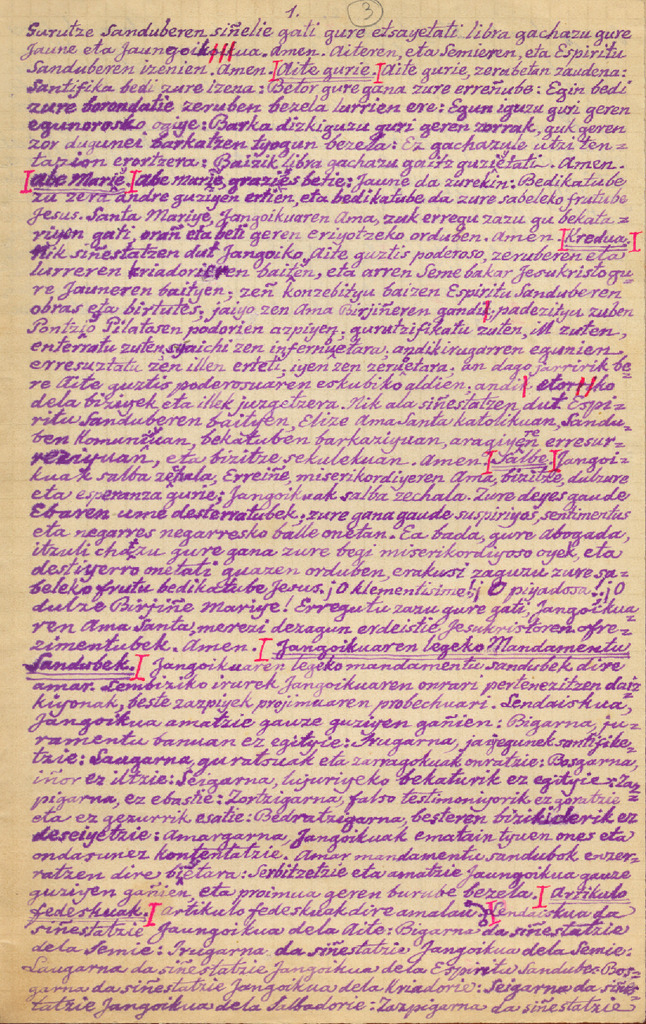 1. 3
Gurutze Sanduberen siñelie gati gure etsayetati libra gachazu gure
Jaune eta Jaungoikokua. Amen. Aiteren, eta Semieren, eta Espiritu
Sanduberen izenien. Amen. Aite gurie, Aite gurie, zerubetan zaudena:
Santifika bedi zure izena: Betor gure gana zure erreñube: Egin bedi
zure borondatie zeruben bezela lurrien ere: Egun iguzu guri geren
egunorosko ogige: Barka dizkiguzu guri geren zorrak, guk geren
zor dugunei barkatzen tyogun bezela: Ez gachazule utzi ten=
tazion erortzera: Baizik libra gachazu gaitz guzietati. Amen.
Abe Marie. Abe marie, grazies betie: Jaune da zurekin: Bedikatube
zu zera andre guziyen ertien, eta bedikatube da zure sabeleko frutube
Jesus. Santa Mariye, Jangoikuaren Ama, zuk erregu zazu gu bekata=
riyon gati, orañ eta beti geren eriyotzeko orduben. Amen. Kredua.
Nik siñestatzen dut Jangoiko, Aite guztis poderoso, zeruberen eta
lurreren kriadorieren baiten, eta arren Seme bakar Jesukristo gu=
re Jauneren baityen; zeñ konzebityu baizen Espiritu Sanduberen
obras eta birtutes, jaiyo zen Ama Birjiñeren gandi, padezityu zuben
Pontzio Pilatasen podorien azpiyen, gurutzifikatu zuten, il zuten,
enterratu zuten, jaichi zen infernuyetara, andik irugarren egunien
erresuztatu zen illen erteti, iyen zen zeruetara; an dago jarririk be=
re Aite guztis poderosuaren eskubiko aldien; andik etorriko
dela biziyek, eta illek juzgetzera. Nik ala siñestatzen dut Espi=
ritu Sanduberen baityen, Elize Ama Santa katolikuan, Sandu=
ben komuniuan, bekatuben barkaziyuan, aragiyen erresur=
reziyuañ, eta bizitze sekulekuan. Amen. Salbe. Jangoi=
kuak salba zechala, Erreiñe, miserikordiyeren Ama, bizitze, dulzure
eta esperanza gurie; Jangoikuak salba zechala. Zure deyes gaude
Ebaren ume desterratubek; zure gana gaude suspiriyos, sentimentus
eta negarres negarresko balle onetan. Ea bada, gure Abogada,
itzuli chazau gure gana zure begi miserikordiyoso oyek, eta
destiyerro onetati guazen orduben, erakusi zaguzu zure sa=
beleko frutu bedikatube Jesus. ¡O klementisime! ¡O piyadosa! ¡O
dulze Birjiñe Mariye! Erregutu zazu gure gati, Jangoikua=
ren Ama Santa, merezi dezagun erdeistie Jesukristoren ofre=
zimentubek. Amen. Jangoikuaren legeko Mandamentu
Sandubek. Jangoikuaren legeko mandamentu sandubek dire
amar. Lembiziko irurek Jangoikuaren onrari pertenezitzen daiz=
kiyonak, beste zazpiyek projimuaren probechuari. Lendaiskua,
Jangoikua amatzie gauze guziyen gañien: Bigarna, ju=
ramentu banuan ez egityie: Irugarna, jaiyegunek santifike=
tzie: Laugarna, guratsuak eta zarragokuak onratzie: Bosgarna,
iñor ez iltzie: Seigarna, lujuriyeko bekaturik ez egityie: Zaz=
pigarna, ez ebastie: Zortzigarna, falso testimoniyorik ez goratzie
eta ez gezurrik esatie: Bedratzigarna, besteren bizikiderik ez
deseiyetzie: Amargarna, Jangoikuak ematain tyuen ones eta
ondasunez kontentatzie. Amar mandamentu sandubok enzer=
ratzen dire bietara: Serbitzetzie eta amatzie Jaungoikua gauze
guziyen gañien, eta proimua geren burube bezela. Artikulo
fedeskuak. Artikulo fedeskuak dire amalau: Lendaiskua da
siñestatzie Jaungoikua dela Aite: Bigarna da siñestatzie
dela Semie: Irugarna da siñestatzie Jangoikua dela Semie:
Laugarna da siñestatzie Jangoikua dela Espiritu Sandube: Bos=
garna da siñestatzie Jangoikua dela kriadorie: Seigarna da siñes=
tatzie Jangoikua dela Salbadorie: Zazpigarna da siñestatzie